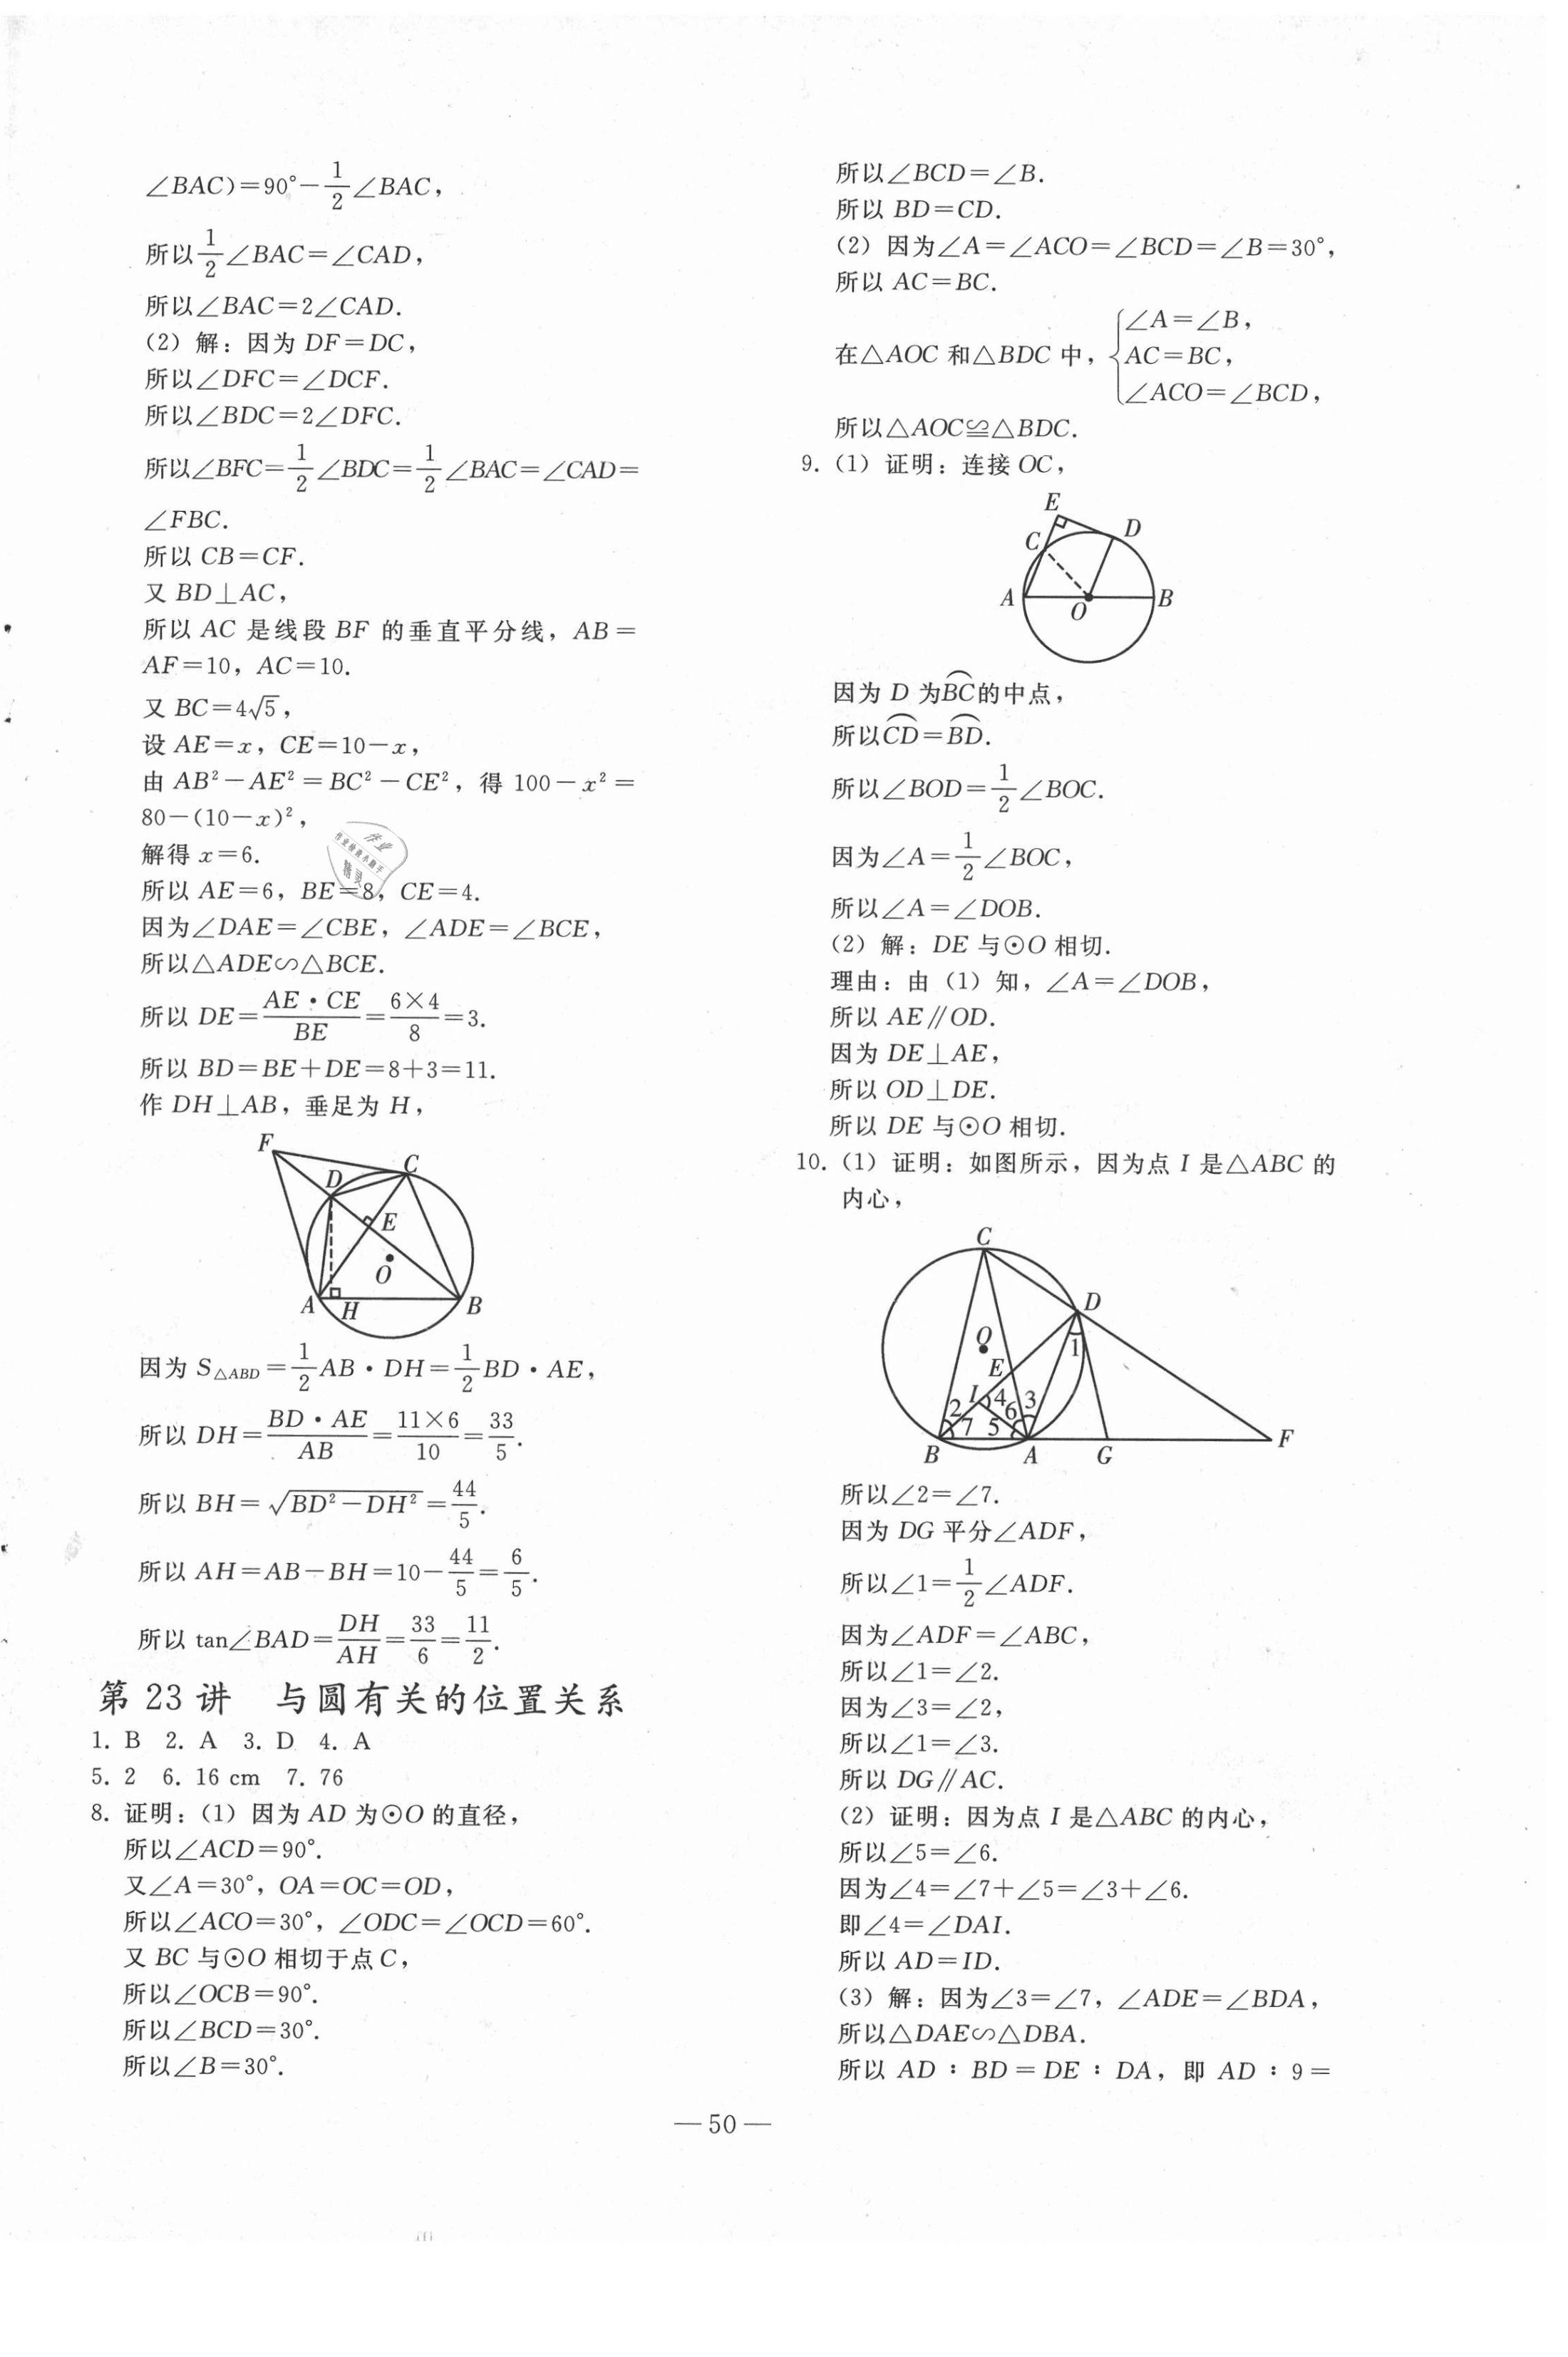 ∠BAC)=90°-1/2∠BAC,
所以1/2∠BAC=∠CAD,
所以∠BAC=2∠CAD.
(2) 解：因为 DF=DC,
所以∠DFC=∠DCF.
所以∠BDC=2∠DFC.
所以∠BFC=1/2∠BDC=1/2∠BAC=∠CAD=
∠FBC.
所以 CB=CF.
又 BD⊥AC,
所以 AC 是线段 BF 的垂直平分线，AB=
AF=10，AC=10.
又 BC=4√5,
设 AE=x，CE=10-x,
由 AB²-AE²=BC²-CE²，得 100-x²=
80-(10-x)²,
解得 x=6.
所以 AE=6，BE=8，CE=4.
因为∠DAE=∠CBE，∠ADE=∠BCE,
所以△ADE∽△BCE.
所以 DE=AE·CE/BE=6×4/8=3.
所以 BD=BE+DE=8+3=11.
作 DH⊥AB，垂足为 H,
F
C
D
E
O
A
H
B
因为 S△ABD=1/2AB·DH=1/2BD·AE,
所以 DH=BD·AE/AB=11×6/10=33/5.
所以 BH=√(BD²-DH²)=44/5.
所以 AH=AB-BH=10-44/5=6/5.
所以 tan∠BAD=DH/AH=33/6=11/2.
第 23 讲　与圆有关的位置关系
1. B 2. A 3. D 4. A
5. 2 6. 16 cm 7. 76
8. 证明：(1) 因为 AD 为⊙O 的直径,
所以∠ACD=90°.
又∠A=30°，OA=OC=OD,
所以∠ACO=30°，∠ODC=∠OCD=60°.
又 BC 与⊙O 相切于点 C,
所以∠OCB=90°.
所以∠BCD=30°.
所以∠B=30°.
所以∠BCD=∠B.
所以 BD=CD.
(2) 因为∠A=∠ACO=∠BCD=∠B=30°,
所以 AC=BC.
在△AOC 和△BDC 中，{∠A=∠B,
AC=BC,
∠ACO=∠BCD,
所以△AOC≌△BDC.
9. (1) 证明：连接 OC,
E
D
C
A
O
B
因为 D 为⌒BC的中点,
所以⌒CD=⌒BD.
所以∠BOD=1/2∠BOC.
因为∠A=1/2∠BOC,
所以∠A=∠DOB.
(2) 解：DE 与⊙O 相切.
理由：由（1）知，∠A=∠DOB,
所以 AE∥OD.
因为 DE⊥AE,
所以 OD⊥DE.
所以 DE 与⊙O 相切.
10. (1) 证明：如图所示，因为点 I 是△ABC 的
内心,
C
D
O
1
E
I 4 3
2 6
7 5
B
A
G
F
所以∠2=∠7.
因为 DG 平分∠ADF,
所以∠1=1/2∠ADF.
因为∠ADF=∠ABC,
所以∠1=∠2.
因为∠3=∠2,
所以∠1=∠3.
所以 DG∥AC.
(2) 证明：因为点 I 是△ABC 的内心,
所以∠5=∠6.
因为∠4=∠7+∠5=∠3+∠6.
即∠4=∠DAI.
所以 AD=ID.
(3) 解：因为∠3=∠7，∠ADE=∠BDA,
所以△DAE∽△DBA.
所以 AD：BD=DE：DA，即 AD：9=
—50—